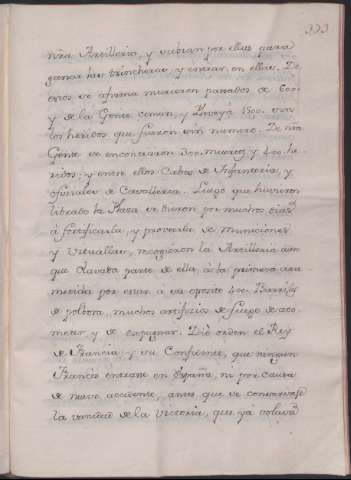 333
nr̃a Artilleria, y subian por ellas para
ganar las trincheras, y entrar en ellas. De
estos se afirma murieron pasados de 600.
y de la Gente comun, y 1500. sin
los heridos que fueron sin numero. De nr̃a
Gente se encontraron 300. muertos, y 400. he-
ridos; y entre ellos Cabos de Infanteria, y
oficiales de Cavalleria. Luego que huvieron
librado la Plaza se dieron por muchos dias
á fortificarla, y proveerla de Municiones
y Vituallas, recogieron la Artilleria aun
que clavada parte de ella, á la primera aco-
metida por estar á su oposito 400. Barriles
de polvora, muchos artificios de fuego de aco-
meter, y de expugnar. Dió orden el Rey
de Francia, y su Confidente, que ningun
Francés entrase en España, ni por causa
de nuevo accidente, antes que se conservase
la vanidad de la Victoria, que yá volava